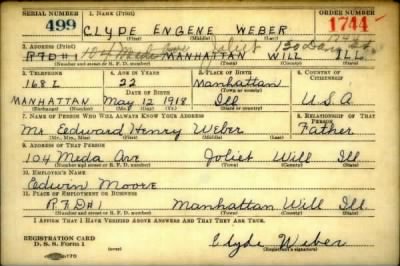 SERIAL NUMBER 1. NAME (Print) ORDER NUMBER
499 CLYDE ENGENE WEBER 1744
(First) (Middle) (Last)
2. ADDRESS (Print)
R7D#1 MANHATTAN WILL ILL
(Number and street or R. F. D. number) (Town) (County) (State)
3. TELEPHONE 4. AGE IN YEARS 5. PLACE OF BIRTH 6. COUNTRY OF CITIZENSHIP
168 L 22 Manhattan
DATE OF BIRTH (Town or county)
MANHATTAN May 12 1918 Ill U.S.A
(Exchange) (Number) (Mo.) (Day) (Yr.) (State or country)
7. NAME OF PERSON WHO WILL ALWAYS KNOW YOUR ADDRESS 8. RELATIONSHIP OF THAT PERSON
Mr. Edward Henry Weber Father
(Mr., Mrs., Miss) (First) (Middle) (Last)
9. ADDRESS OF THAT PERSON
104 Meda Ave Joliet Will Ill
(Number and street or R. F. D. number) (Town) (County) (State)
10. EMPLOYER'S NAME
Edwin Moore
11. PLACE OF EMPLOYMENT OR BUSINESS
R7D#1 Manhattan Will Ill
(Number and street or R. F. D. number) (Town) (County) (State)
I AFFIRM THAT I HAVE VERIFIED ABOVE ANSWERS AND THAT THEY ARE TRUE.
REGISTRATION CARD
D. S. S. Form 1 Clyde Weber
(Registrant's signature)